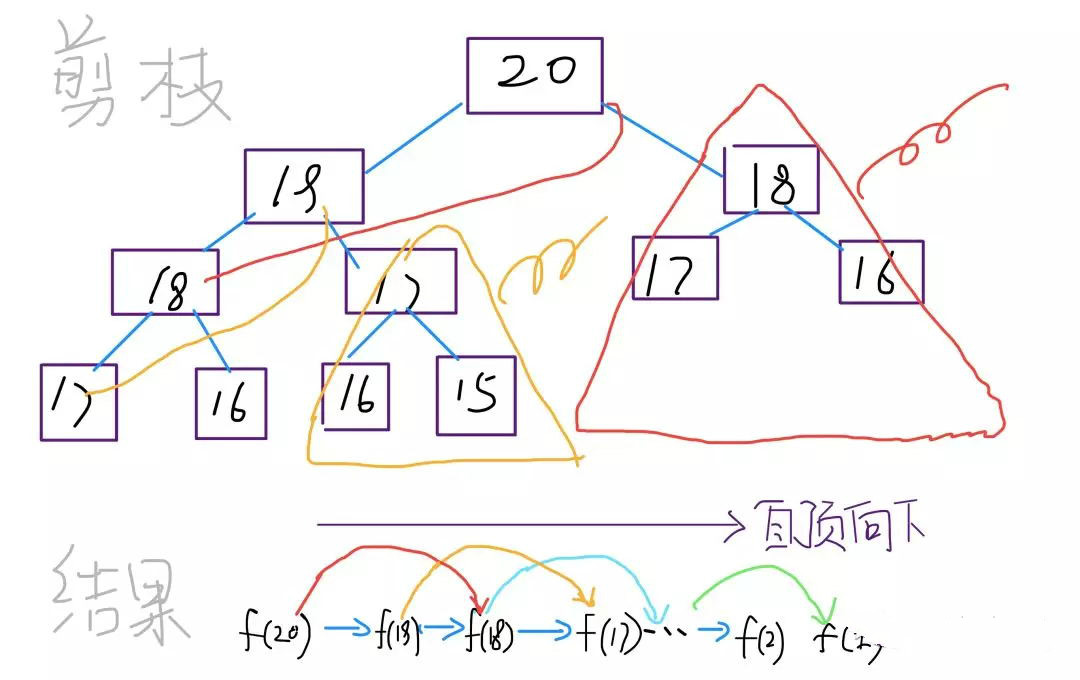 剪枝
20
19
18
18
17
17
16
17
16
16
15
自顶向下
结果
f(20) → f(19) → f(18) → f(17) ··· → f(2)